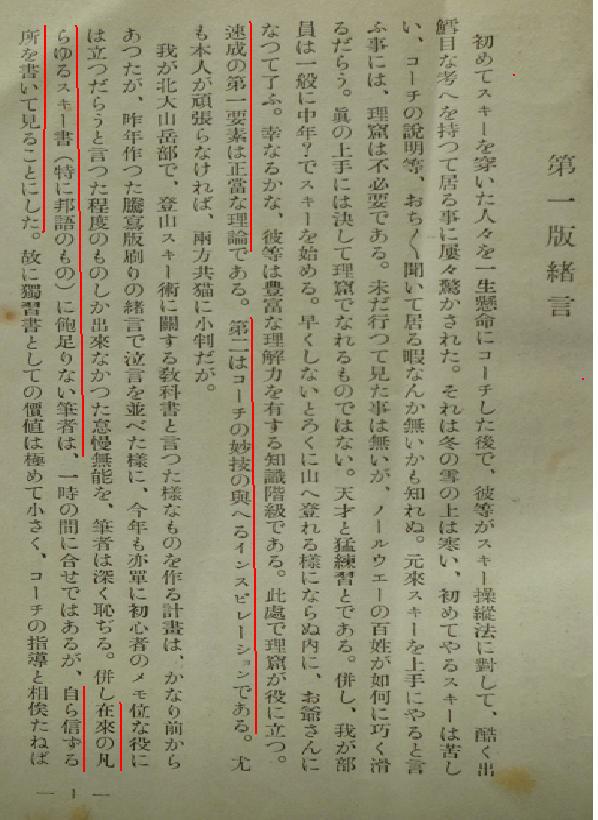 第一版緒言
初めてスキーを穿いた人々を一生懸命にコーチした後で、彼等がスキー操縦法に對して、酷く出
鱈目な考へを持つて居る事に屢々驚かされた。それは冬の雪の上は寒い、初めてやるスキーは苦し
い、コーチの説明等、おち〱聞いて居る暇なんか無いかも知れぬ。元來スキーを上手にやると言
ふ事には、理窟は不必要である。未だ行つて見た事は無いが、ノールウエーの百姓が如何に巧く滑
るだらう。眞の上手には決して理窟でなれるものではない。天才と猛練習とである。併し、我が部
員は一般に中年？でスキーを始める。早くしないとろくに山へ登れる様にならぬ内に、お爺さんに
なつて了ふ。幸なるかな、彼等は豊富な理解力を有する知識階級である。此處で理窟が役に立つ。
速成の第一要素は正當な理論である。第二はコーチの妙技の與へるインスピレーションである。尤
も本人が頑張らなければ、兩方共猫に小判だが。
我が北大山岳部で、登山スキー術に關する敎科書と言つた様なものを作る計畫は、かなり前から
あつたが、昨年作つた謄寫版刷りの緒言で泣言を並べた様に、今年も亦單に初心者のメモ位な役に
は立つだらうと言つた程度のものしか出來なかつた怠慢無能を、筆者は深く恥ぢる。併し在來の凡
らゆるスキー書（特に邦語のもの）に飽足りない筆者は、一時の間に合せではあるが、自ら信ずる
所を書いて見ることにした。故に獨習書としての價値は極めて小さく、コーチの指導と相俟たねば
— 1 —